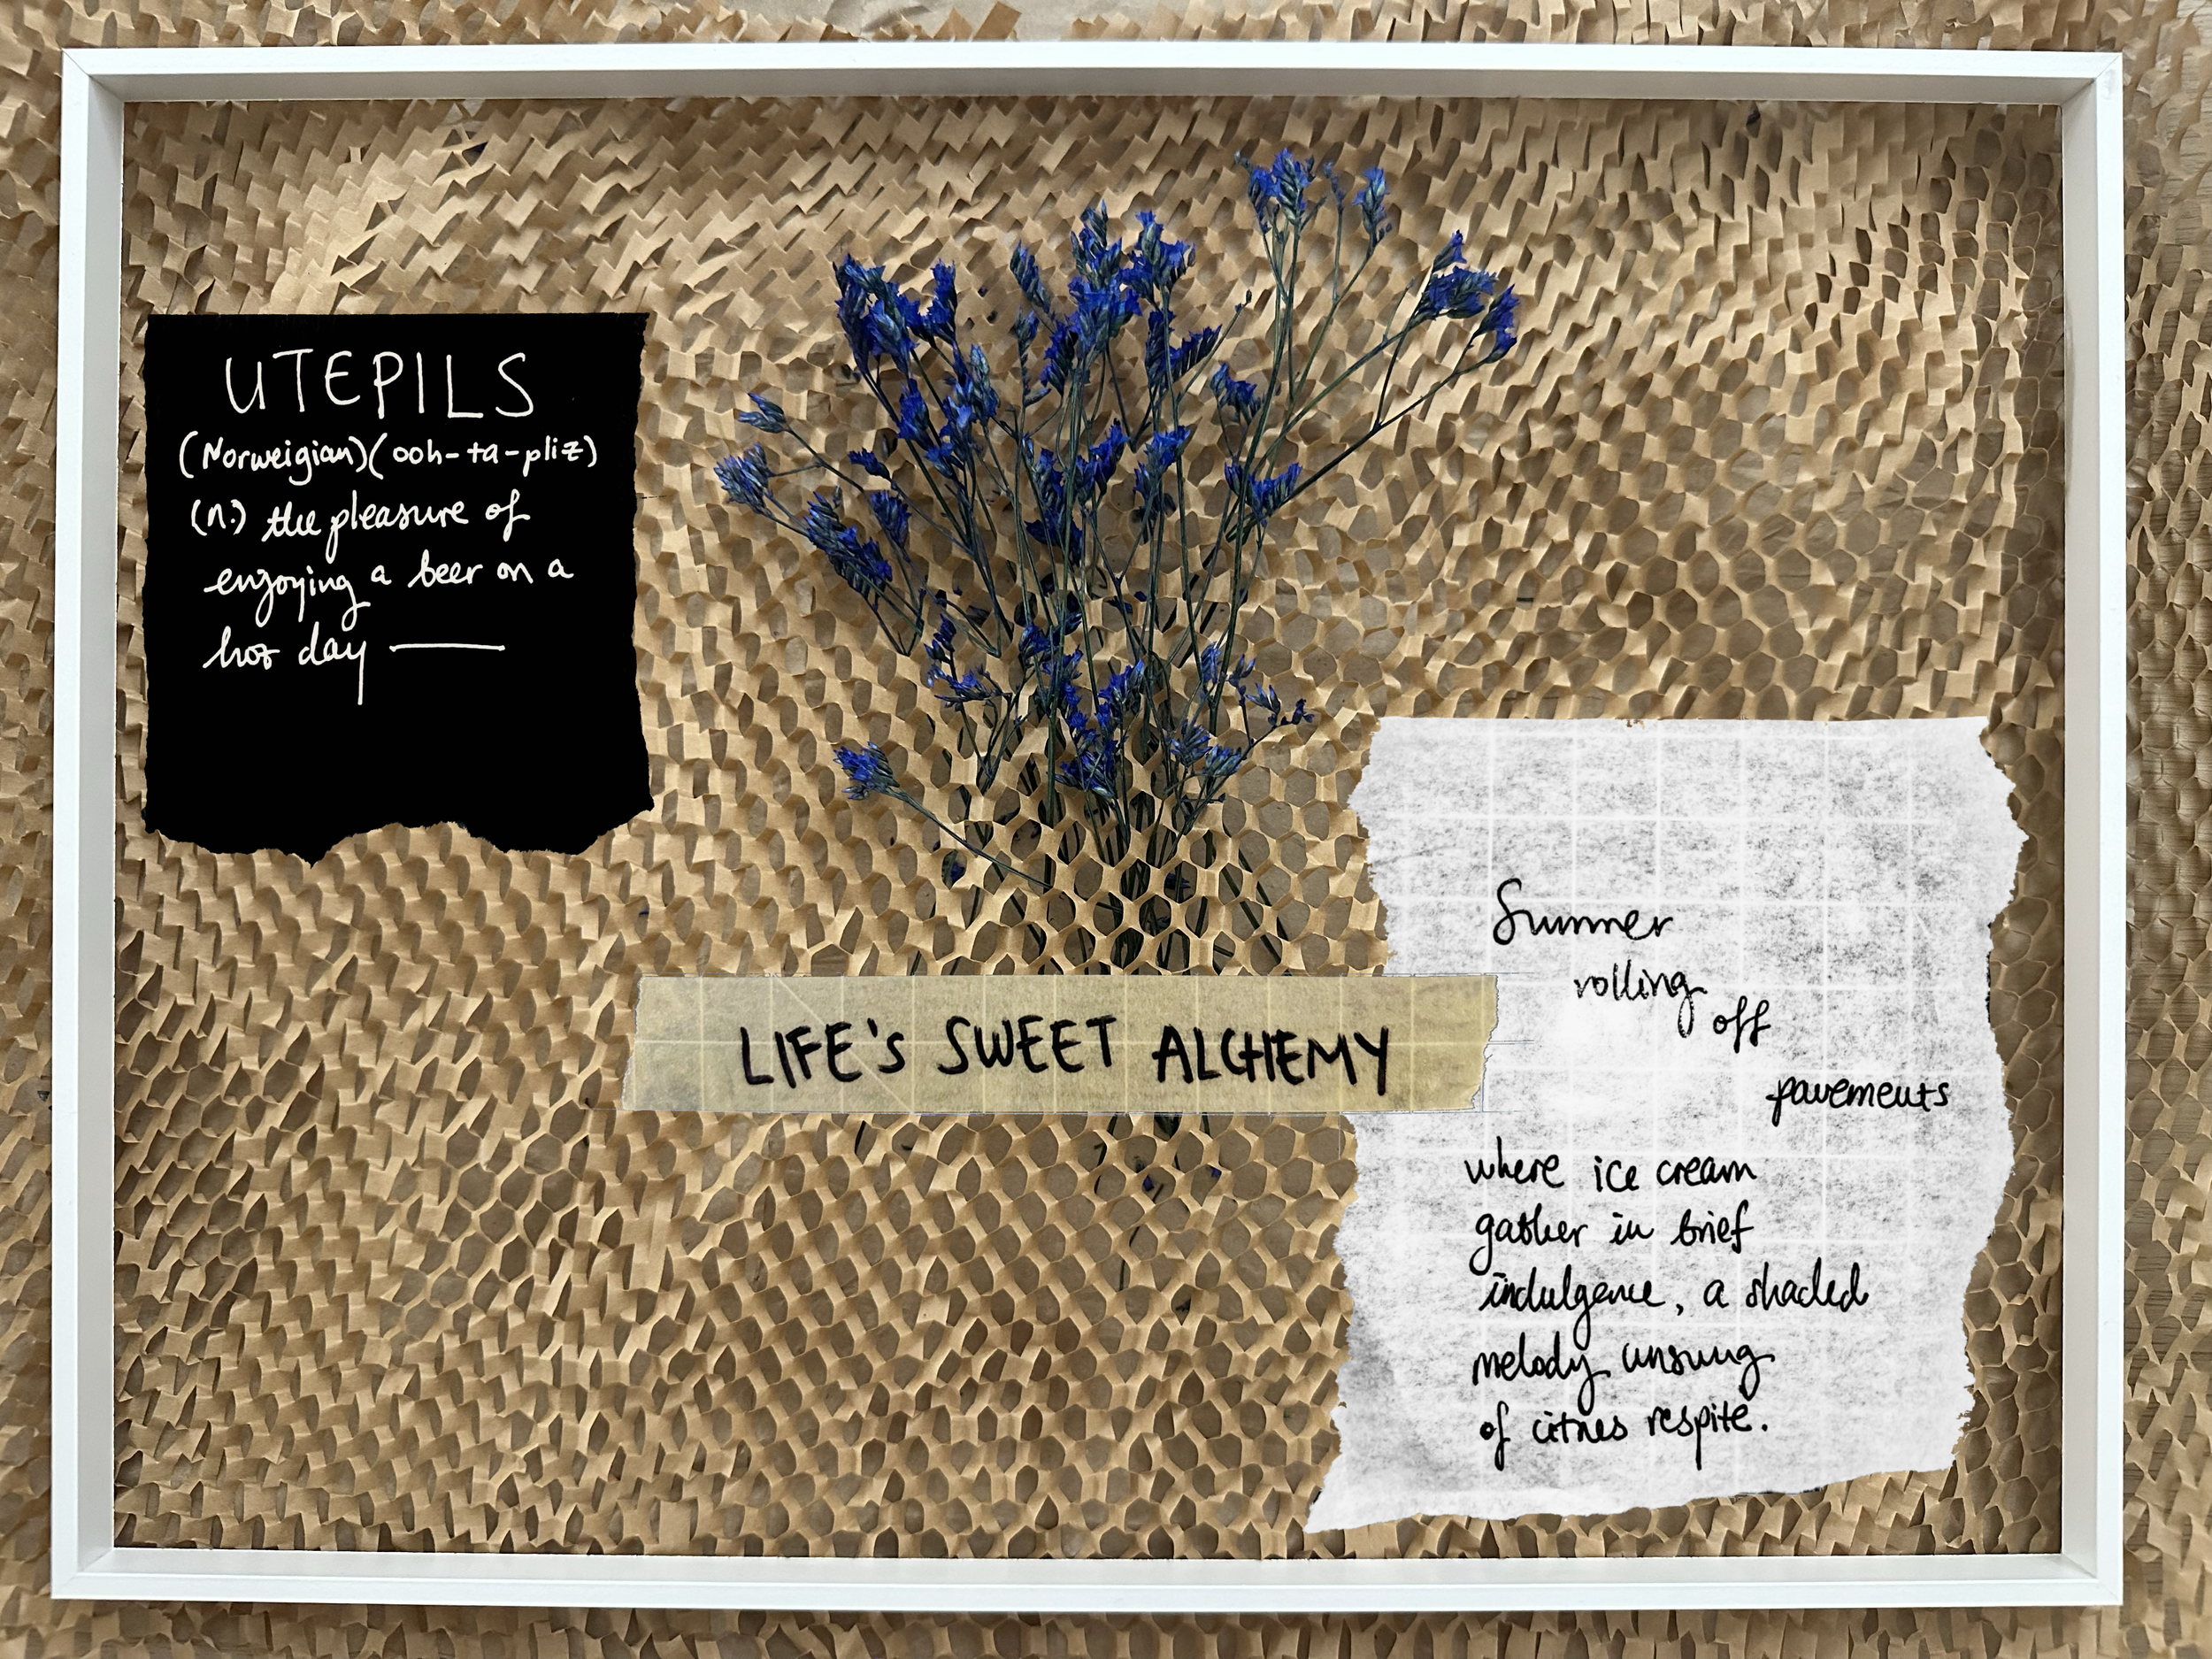 UTEPILS
(Norweigian)(ooh-ta-pliz)
(n.) the pleasure of
enjoying a beer on a
hot day
LIFE'S SWEET ALCHEMY
Summer
rolling
off
pavements
where ice cream
gather in brief
indulgence, a shaded
melody unsung
of citrus respite.